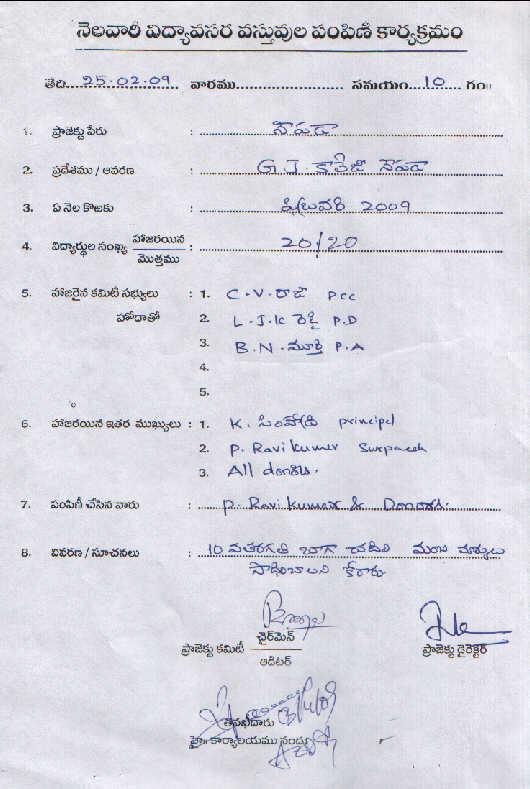 నెలవారీ విద్యావసర వస్తువుల పంపిణి కార్యక్రమం
తేది... 25.02.09 వారము.................... సమయం...10.... గం॥
1. ప్రాజెక్టు పేరు : నౌపడా
2. ప్రదేశము / ఆవరణ : G J కాలేజి నౌపడా
3. ఏ నెల కొఱకు : ఫిబ్రవరి 2009
4. విద్యార్థుల సంఖ్య హాజరయిన / మొత్తము : 20/20
5. హాజరైన కమిటీ సభ్యులు : 1. C.V. రాజా PCC
హోదాతో 2. L.J.K రెడ్డి P.D
3. B.N. మూర్తి P.A
4.
5.
6. హాజరయిన ఇతర ముఖ్యులు : 1. K. principal
2. P. Ravi kumar Surpanch
3. All donors.
7. పంపిణీ చేసిన వారు : P. Ravi kumar & Donors.
8. వివరణ / సూచనలు : 10 వతరగతి బాగా చదివి మంచి మార్కులు
సాధించాలని కోరారు
చైర్‌మెన్
ప్రాజెక్టు కమిటీ
ఆడిటర్
ప్రాజెక్టు డైరెక్టర్
తనిఖీదారు
హై॥ కార్యాలయము నందు